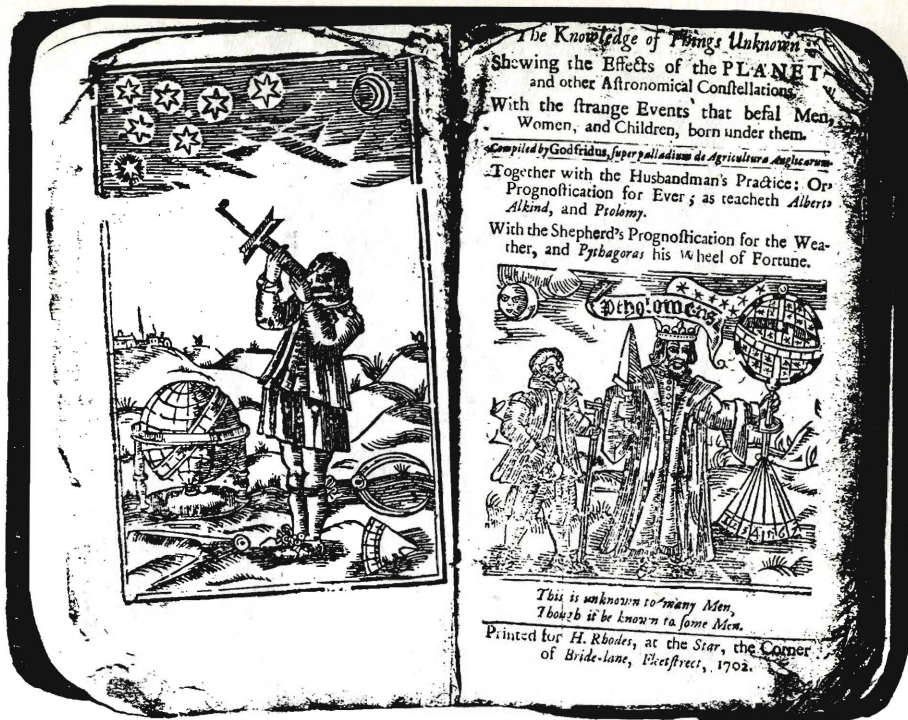 The Knowledge of Things Unknown
Shewing the Effects of the PLANET
and other Aſtronomical Conſtellations
With the ſtrange Events that befal Men,
Women, and Children, born under them.
Compiled by Godfridus, ſuper palladium de Agricultura Anglicarum
Together with the Husbandman's Practice: Or,
Prognoſtication for Ever; as teacheth Albert,
Alkind, and Ptolomy.
With the Shepherd's Prognoſtication for the Wea-
ther, and Pythagoras his Wheel of Fortune.
Ptholomeus
This is unknown to many Men,
Though it be known to ſome Men.
Printed for H. Rhodes, at the Star, the Corner
of Bride-lane, Fleetſtreet, 1702.